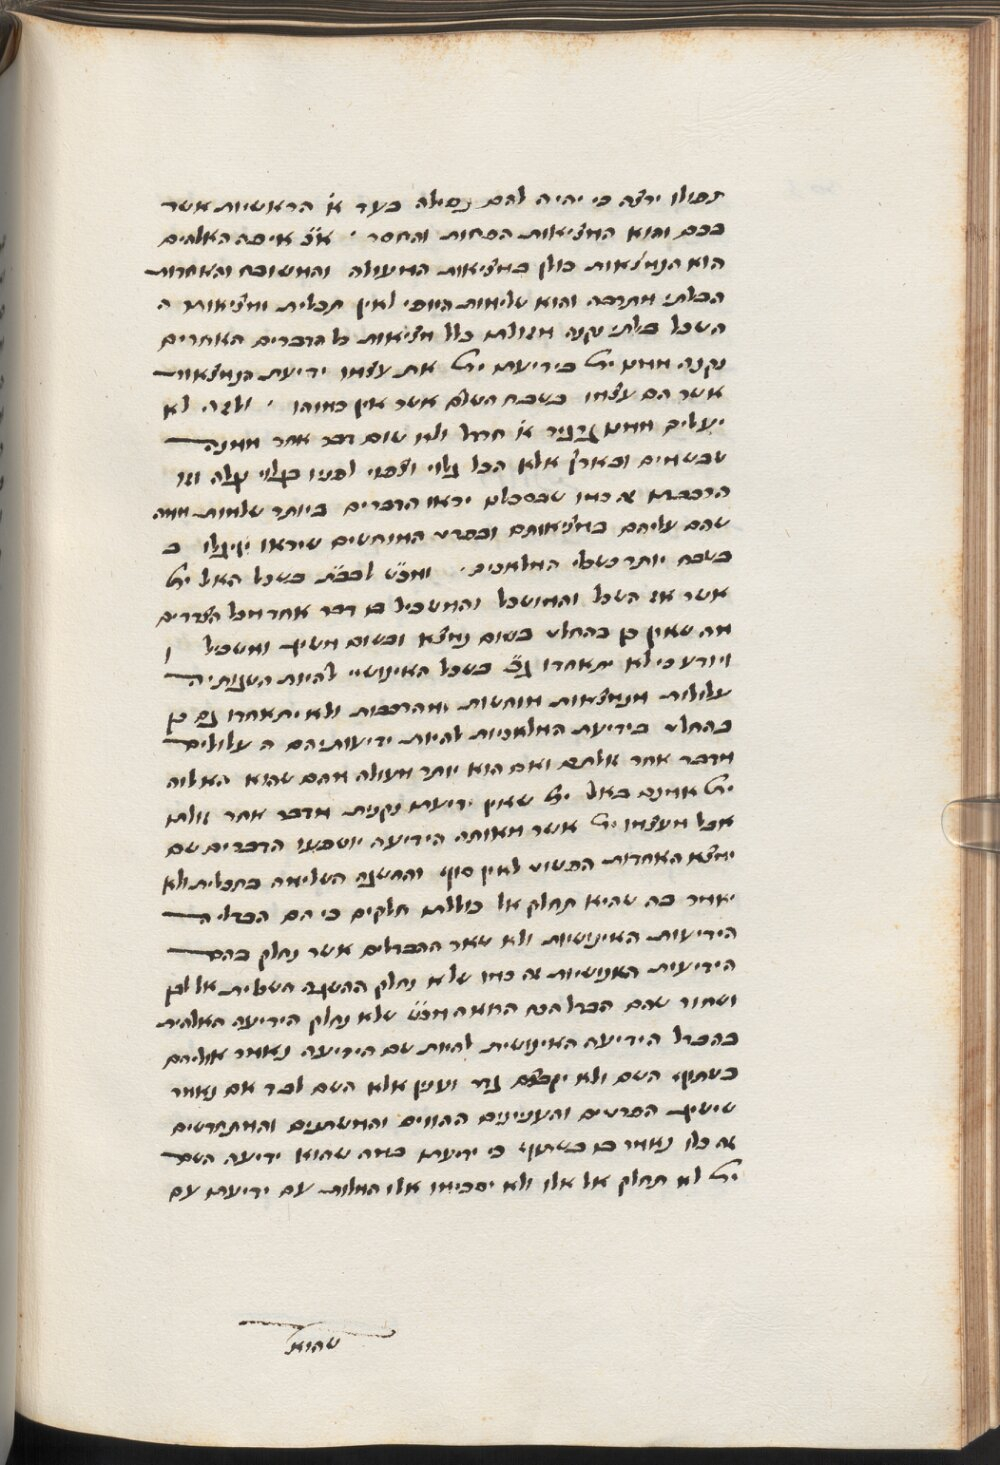 תפולו ירצה כי יהיה להם נפילה בעד א' הראשיות אשר
בכם והוא המציאות הפחות והחסר ' א"כ איפה האלהים
הוא הנמצאות כולן במציאות המעולה והמשובח והאחדות
הבלתי מתרבה והוא שלימות היופי לאין תכלית ומציאותו ה
השכל בלתי נקנה מזולתו כלל מציאות כל הדברים האחרים
נקנה ממנו ית' בידיעתו ית' את עצמו ידיעת הנמצאות
אשר הם עצמו בשבח השלם אשר אין כמוהו ' ולזה לא
יעלים ממנו גרגיר א' חרדל ולא שום דבר אחר ממנה
שבשמים ובארץ אלא הכל גלוי וצפוי לפניו
כמו שבסבלם יראו הדברים ביותר שלמות ממה
שהם עליהם במציאותם ובפרט המוחשים שיראו
בשבח יותר בשכלי המלאכים ' ומכ"ש לבב"ת בשכל האל ית'
אשר אז השכל והמושכל והמשכיל בו דבר אחד מכל הצדדים
מה שאין כן בהחלט בשום נמצא ובשום משיג ומשכיל ו
וידוע כי לא יתאחדו ג"כ בשכל האינושיי להיות השגותיה
עלולות מנמצאות מוחשות ומהרכבות ולא יתאחדו גם כן
בהחלט בידיעת המלאכיות להיות ידיעותיהם ה עלולים
מדבר אחר זולתם ואם הוא יותר מעולה מהם שהוא האלוה
ית' אמנם באל ית' שאין ידיעתו נקנית מדבר אחר זולתו
אבל מעצמו ית' אשר מאותה הידיעה יושפעו הדברים שם
ימצא האחדות הפשוט לאין סוף וההשגה השלימה בתכלית ולא
יאמר בה שהיא תחלק אל כוללת חלקים כי הם הבדלי ה
הידיעות האינושיות ולא שאר ההבדלים אשר נחלק בהם
הידיעות האנושיות כמו שלא נחלק ההשגה השכלית אל לבן
ושחור שהם הבדל הכח הרואה מכ"ש שלא נחלק הידיעה האלהית
בהבדל הידיעה האינושית להיות שם הידיעה נאמר אליהם
בשתוף השם ולא יקבצם גדר וענין אלא השם לבד אם נאמר
שישיג הפרטים והענינים ההווים והמשתנים והמתחדשים
כלו נאמר בו בשתוף כי ידיעתו במה שהוא ידיעה השם
ית' לא תחלק אל אלו ולא יסכימו אלו המלות עם ידיעתו עם
שהוא